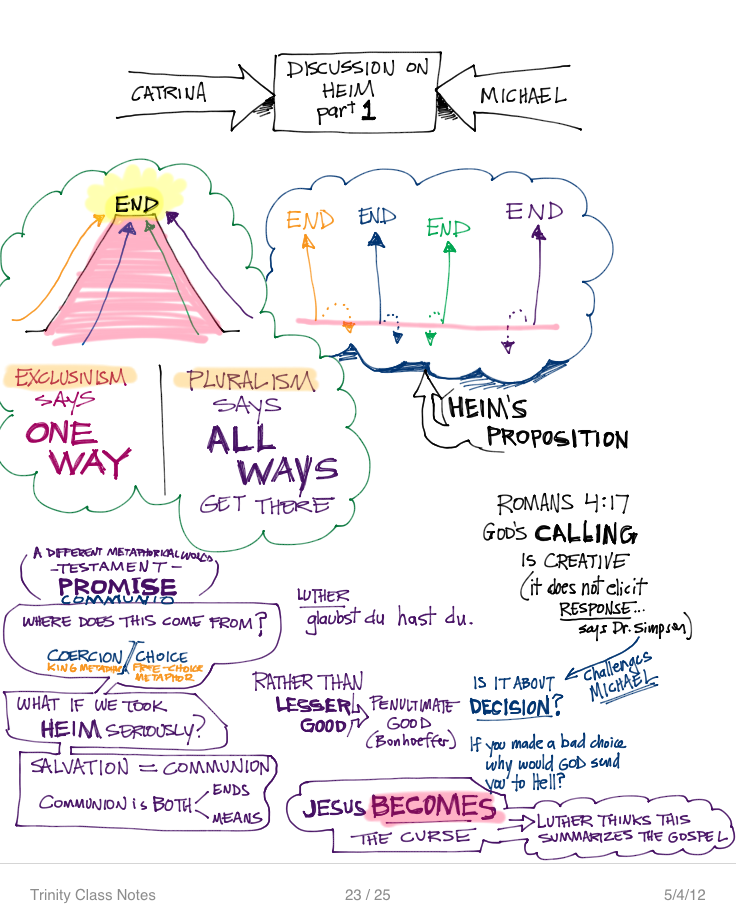 DISCUSSION ON
HEIM
part 1
CATRINA
MICHAEL
END
END
END
END
END
EXCLUSIVISM
SAYS
ONE
WAY
PLURALISM
SAYS
ALL
WAYS
GET THERE
HEIM'S
PROPOSITION
ROMANS 4:17
GOD'S CALLING
IS CREATIVE
(it does not elicit
RESPONSE...
says Dr. Simpson)
challenges
MICHAEL
IS IT ABOUT
DECISION?
If you made a bad choice
why would GOD send
you to Hell?
A DIFFERENT METAPHORICAL WORLD
-TESTAMENT-
PROMISE
COMMUNIO
WHERE DOES THIS COME FROM?
COERCION / CHOICE
KING METAPHOR FREE-CHOICE
METAPHOR
WHAT IF WE TOOK
HEIM SERIOUSLY?
SALVATION = COMMUNION
COMMUNION is BOTH
ENDS
MEANS
LUTHER
glaubst du hast du.
RATHER THAN
LESSER
GOOD
PENULTIMATE
GOOD
(Bonhoeffer)
JESUS BECOMES
THE CURSE
LUTHER THINKS THIS
SUMMARIZES THE GOSPEL
Trinity Class Notes
23 / 25
5/4/12